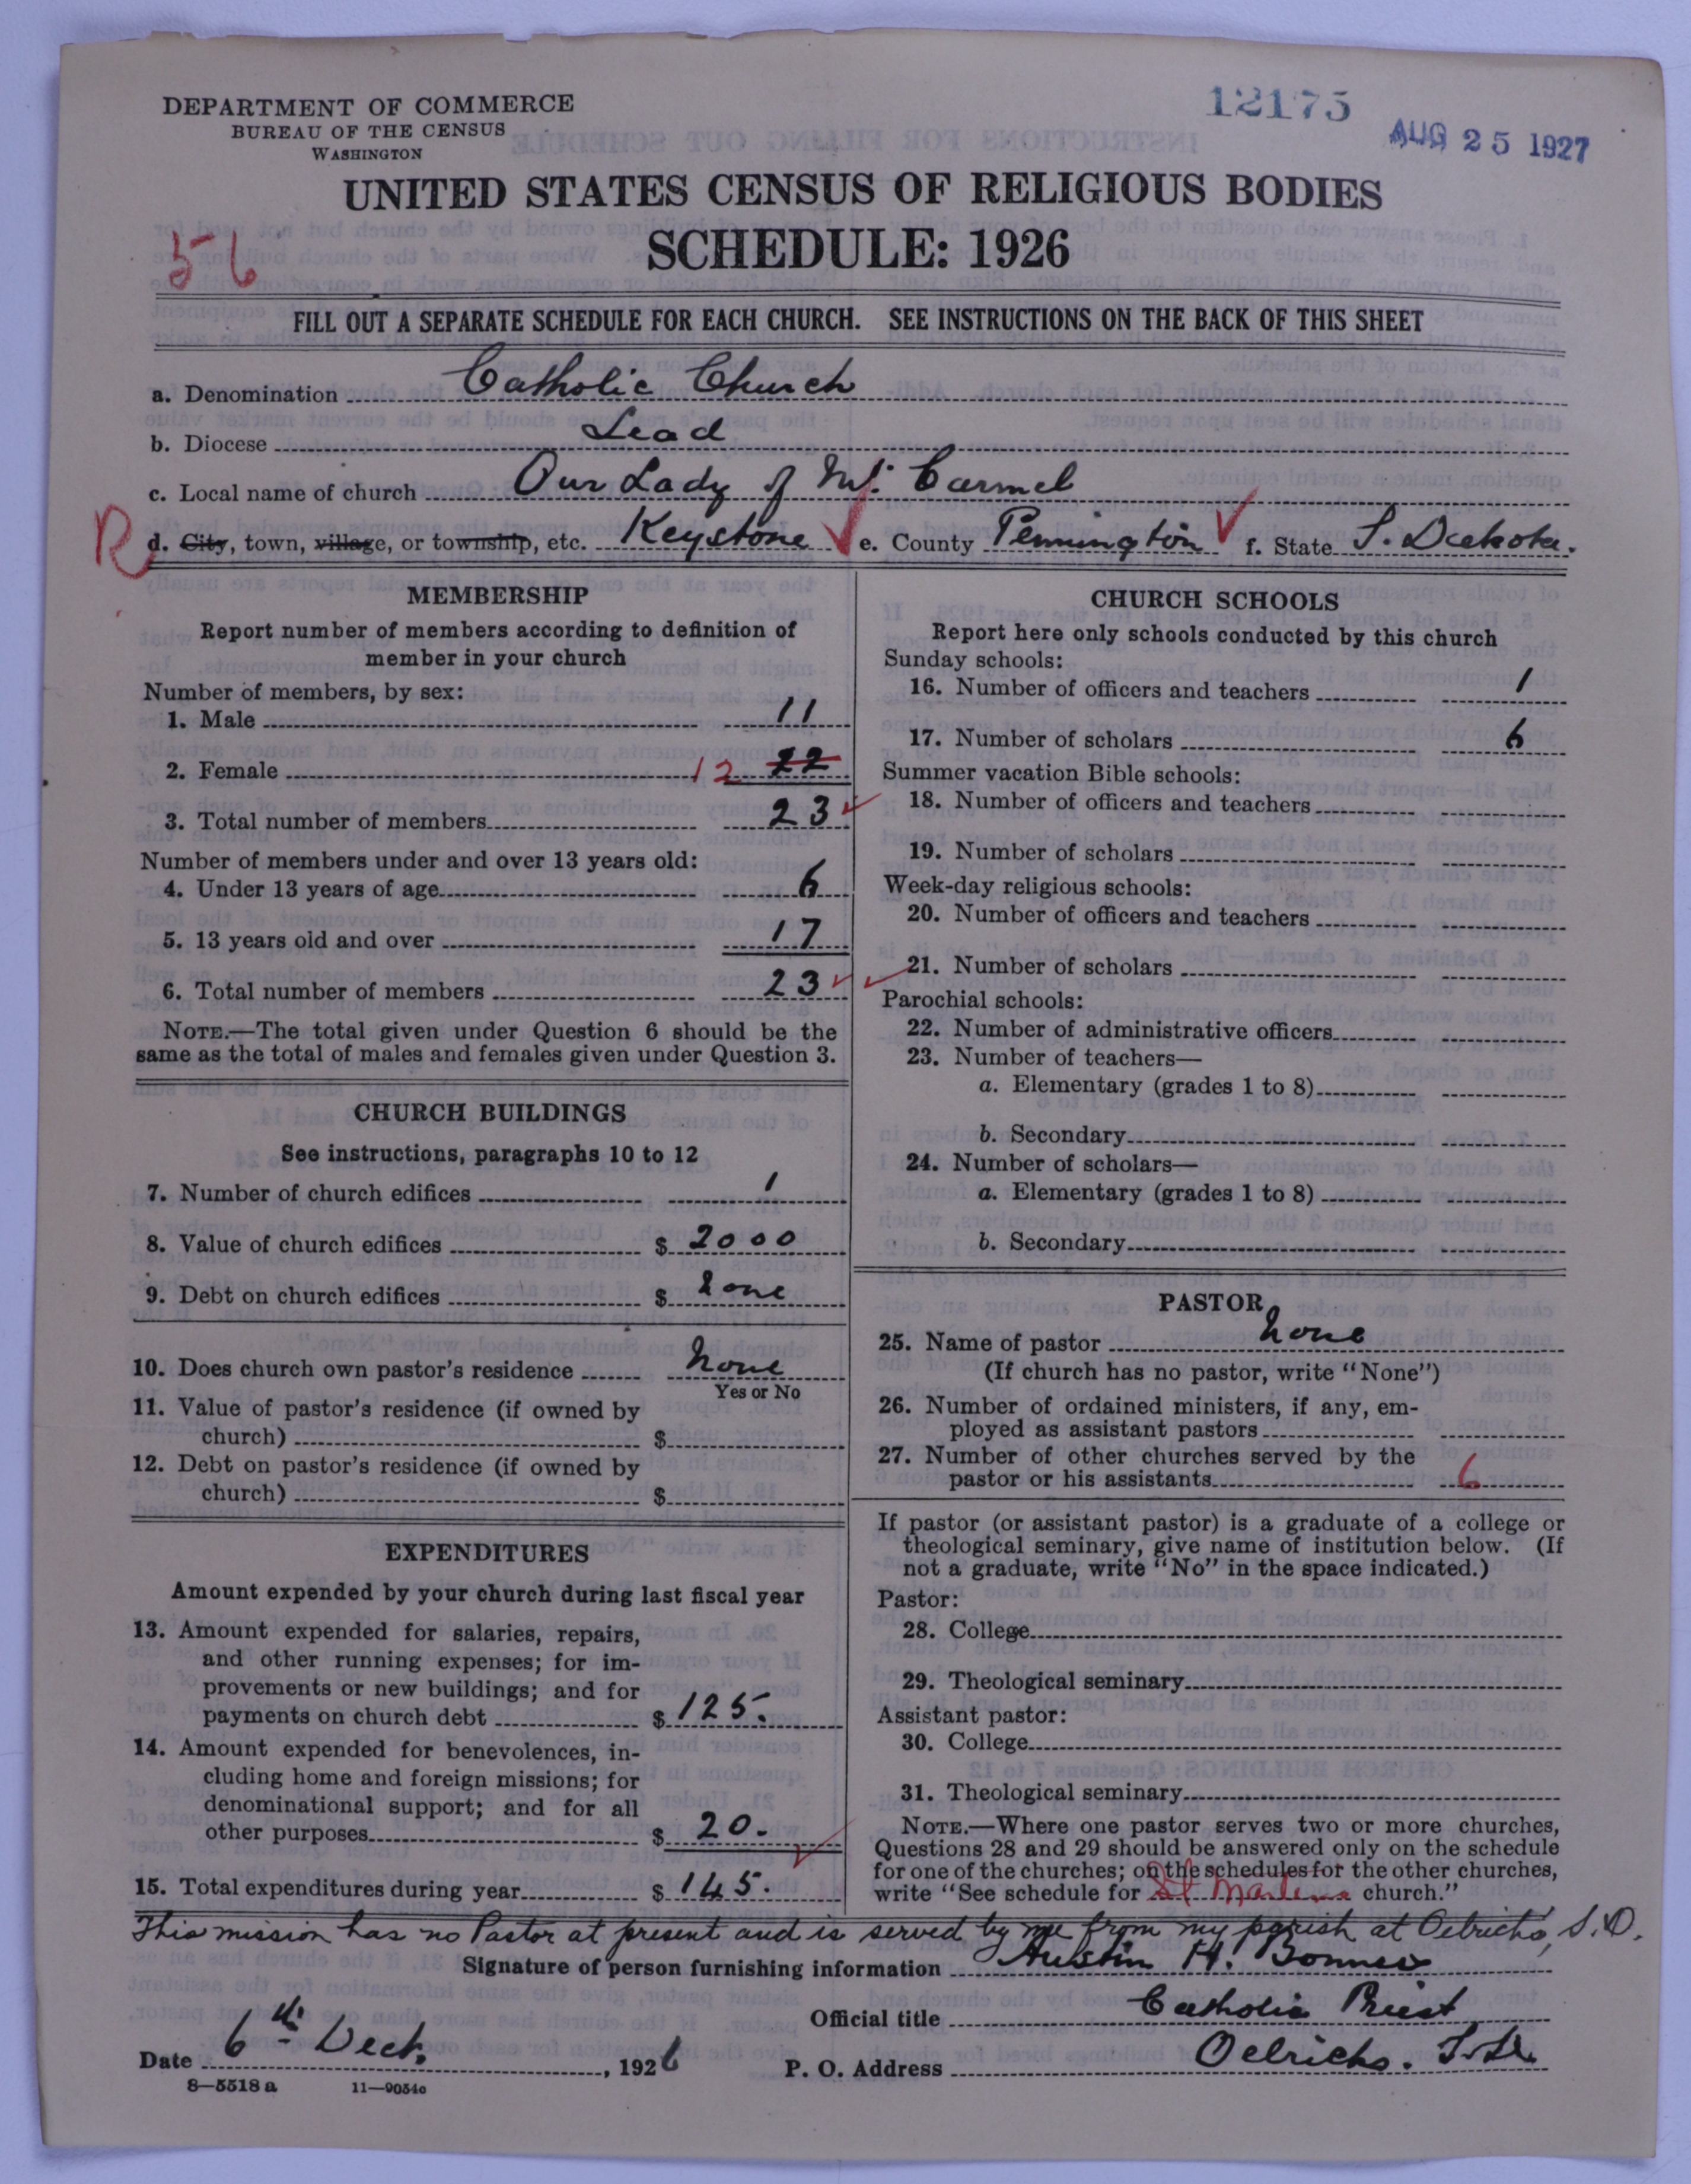 DEPARTMENT OF COMMERCE
BUREAU OF THE CENSUS
WASHINGTON
12175
AUG 25 1927
UNITED STATES CENSUS OF RELIGIOUS BODIES
SCHEDULE: 1926
56
FILL OUT A SEPARATE SCHEDULE FOR EACH CHURCH. SEE INSTRUCTIONS ON THE BACK OF THIS SHEET
a. Denomination Catholic Church
b. Diocese Lead
c. Local name of church Our Lady of Mt. Carmel
R d. City, town, village, or township, etc. Keystone e. County Pennington f. State S. Dakota.
MEMBERSHIP
Report number of members according to definition of
member in your church
Number of members, by sex:
1. Male 11
2. Female 12 22
3. Total number of members 23
Number of members under and over 13 years old:
4. Under 13 years of age 6
5. 13 years old and over 17
6. Total number of members 23
NOTE.—The total given under Question 6 should be the
same as the total of males and females given under Question 3.
CHURCH BUILDINGS
See instructions, paragraphs 10 to 12
7. Number of church edifices 1
8. Value of church edifices $ 2000
9. Debt on church edifices $ none
10. Does church own pastor's residence none
Yes or No
11. Value of pastor's residence (if owned by
church) $
12. Debt on pastor's residence (if owned by
church) $
EXPENDITURES
Amount expended by your church during last fiscal year
13. Amount expended for salaries, repairs,
and other running expenses; for im-
provements or new buildings; and for
payments on church debt $ 125.
14. Amount expended for benevolences, in-
cluding home and foreign missions; for
denominational support; and for all
other purposes $ 20.
15. Total expenditures during year $ 145.
CHURCH SCHOOLS
Report here only schools conducted by this church
Sunday schools:
16. Number of officers and teachers 1
17. Number of scholars 6
Summer vacation Bible schools:
18. Number of officers and teachers
19. Number of scholars
Week-day religious schools:
20. Number of officers and teachers
21. Number of scholars
Parochial schools:
22. Number of administrative officers
23. Number of teachers—
a. Elementary (grades 1 to 8)
b. Secondary
24. Number of scholars—
a. Elementary (grades 1 to 8)
b. Secondary
PASTOR
25. Name of pastor none
(If church has no pastor, write "None")
26. Number of ordained ministers, if any, em-
ployed as assistant pastors
27. Number of other churches served by the
pastor or his assistants 6
If pastor (or assistant pastor) is a graduate of a college or
theological seminary, give name of institution below. (If
not a graduate, write "No" in the space indicated.)
Pastor:
28. College
29. Theological seminary
Assistant pastor:
30. College
31. Theological seminary
NOTE.—Where one pastor serves two or more churches,
Questions 28 and 29 should be answered only on the schedule
for one of the churches; on the schedules for the other churches,
write "See schedule for St. Martens church."
This mission has no Pastor at present and is served by me from my parish at Oelrichs, S.D.
Signature of person furnishing information Austin H. Bonner
Official title Catholic Priest
Date 6th Dect. , 1926 P. O. Address Oelrichs. S. D.
8—5518 a 11—9054c